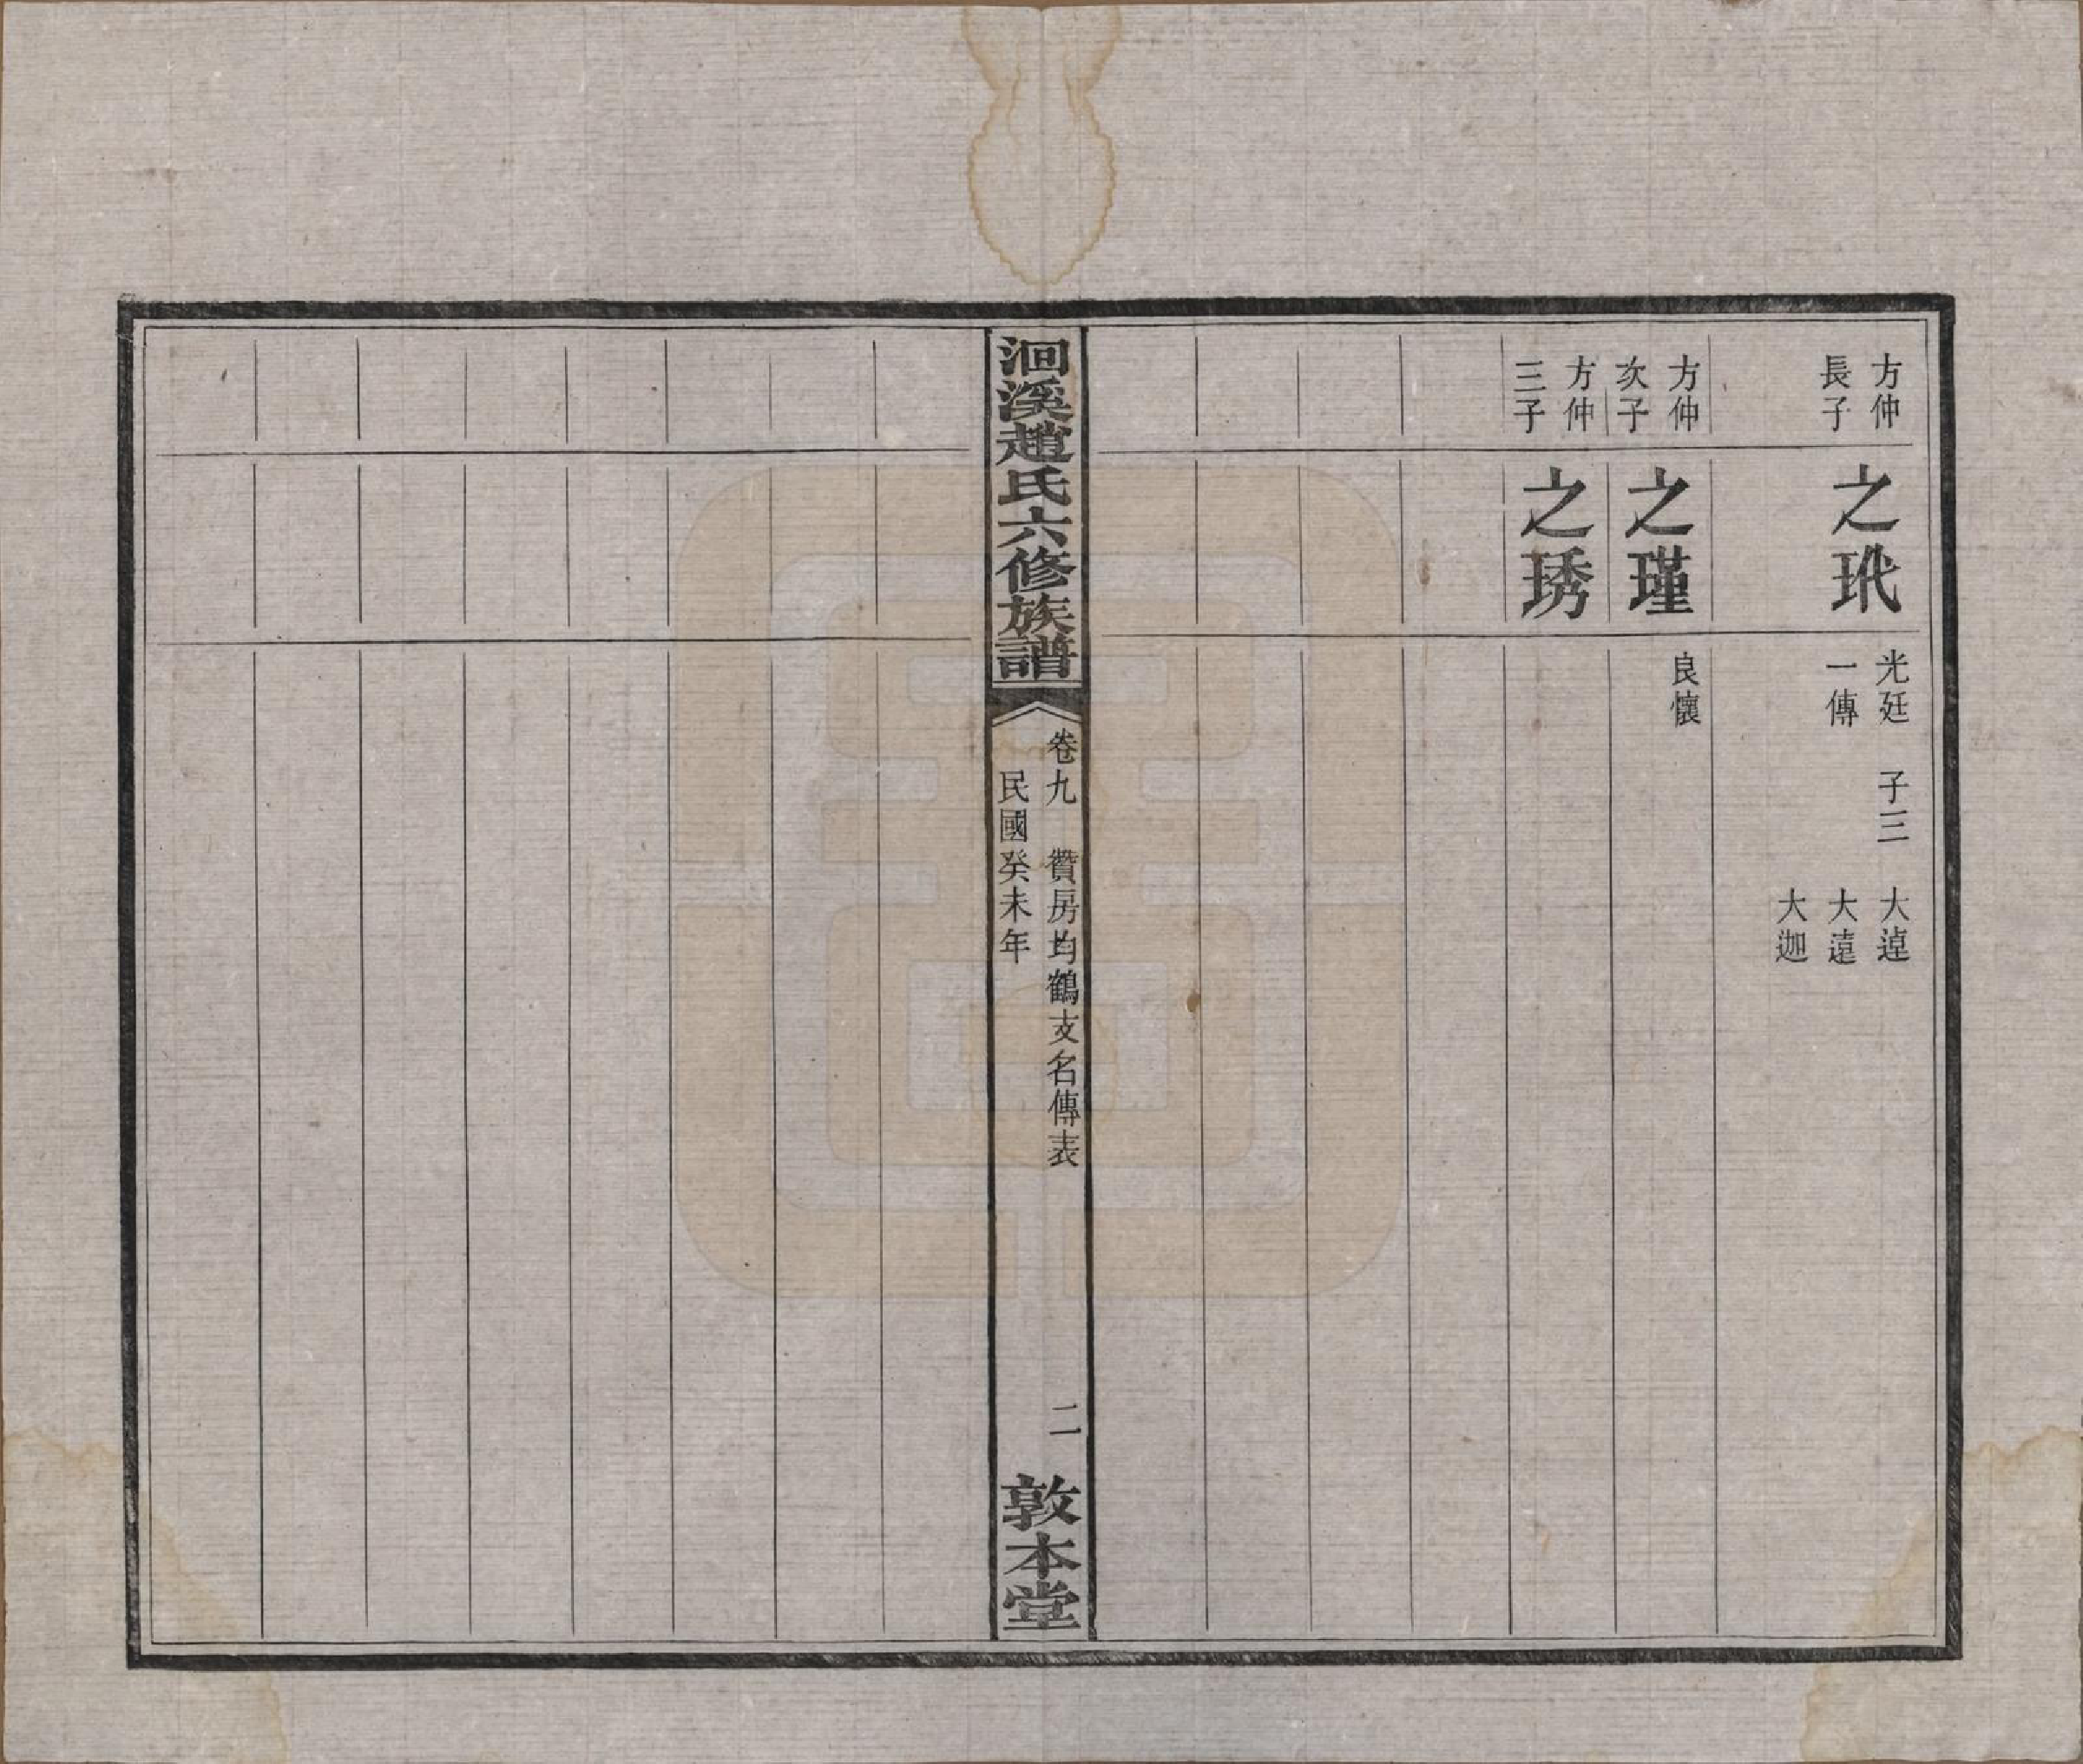 方仲
長子
之玳
光廷　子三　大逴
一傳　大遠
大迦
方仲
次子
之瑾
良懷
方仲
三子
之琇
洄溪趙氏六修族譜
卷九　贊房均鶴支名傳表　二
民國癸未年
敦本堂